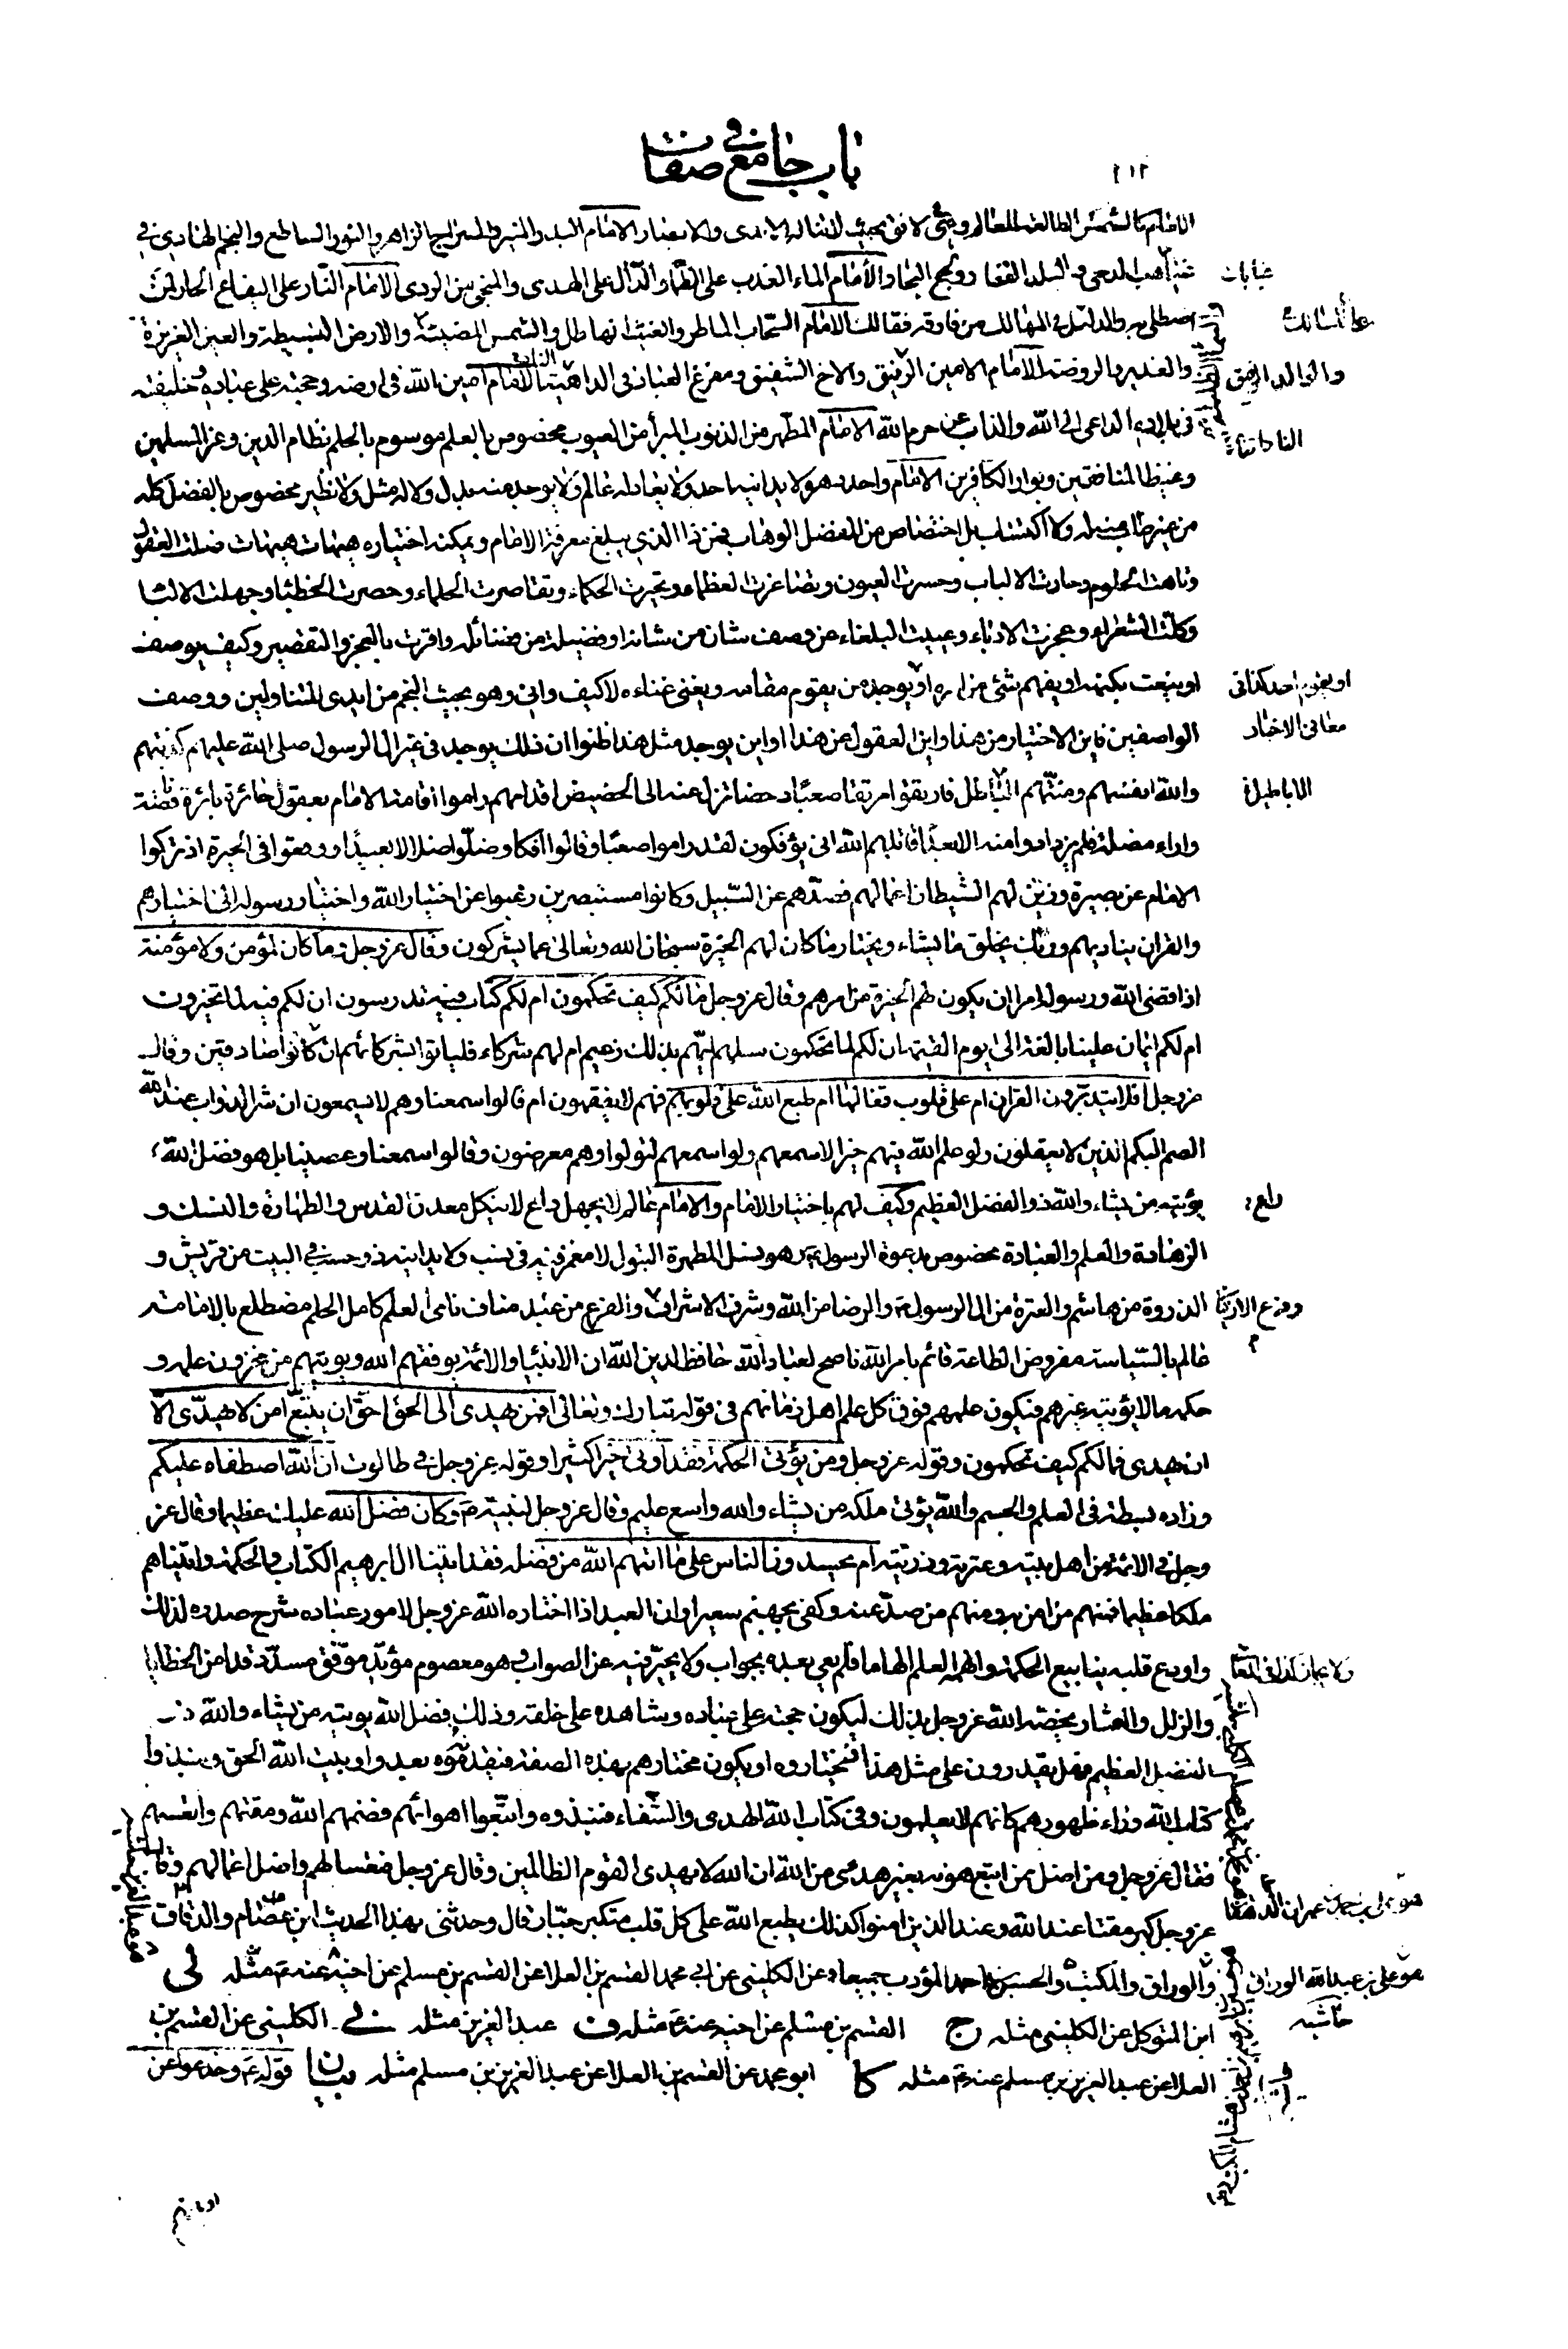 باب جامع في صفات
٢١٢
الامام كالشمس الطالعة للعالم وهي في الافق بحيث لا تناله الايدي والابصار الامام البدر المنير والسراج الزاهر والنور الساطع والنجم الهادي في
غياهب الدجى والبلد القفار ولجج البحار والامام الماء العذب على الظماء والدال على الهدى والمنجي من الردى الامام النار على اليفاع الحار لمن
اصطلى به والدليل في المهالك من فارقه فهالك الامام السحاب الماطر والغيث الهاطل والشمس المضيئة والارض البسيطة والعين الغزيرة
والغدير والروضة الامام الامين الرفيق والاخ الشفيق ومفزع العباد في الداهية الامام امين الله في ارضه وحجته على عباده وخليفته
في بلاده الداعي الى الله والذاب عن حرم الله الامام المطهر من الذنوب المبرأ من العيوب مخصوص بالعلم موسوم بالحلم نظام الدين وعز المسلمين
وغيظ المنافقين وبوار الكافرين الامام واحد دهره لا يدانيه احد ولا يعادله عالم ولا يوجد منه بدل ولا له مثل ولا نظير مخصوص بالفضل كله
من غير طلب منه له ولا اكتساب بل اختصاص من المفضل الوهاب فمن ذا الذي يبلغ معرفة الامام ويمكنه اختياره هيهات هيهات ضلت العقول
وتاهت الحلوم وحارت الالباب وحسرت العيون وتصاغرت العظماء وتحيرت الحكماء وتقاصرت الحلماء وحصرت الخطباء وجهلت الالباء
وكلت الشعراء وعجزت الادباء وعييت البلغاء عن وصف شان من شانه او فضيلة من فضائله واقرت بالعجز والتقصير وكيف يوصف
او ينعت بكنهه او يفهم شئ من امره او يوجد من يقوم مقامه ويغني غناءه لا كيف واني وهو بحيث النجم من ايدي المتناولين ووصف
الواصفين فاين الاختيار من هذا واين العقول عن هذا او اين يوجد مثل هذا ظنوا ان ذلك يوجد في غير آل الرسول صلى الله عليهم كذبتهم
والله انفسهم ومنتهم الباطل فارتقوا مرتقا صعبا دحضا تزل عنه الى الحضيض اقدامهم راموا اقامة الامام بعقول حائرة بائرة ناقصة
واراء مضلة فلم يزدادوا منه الا بعدا قاتلهم الله انى يؤفكون لقد راموا صعبا وقالوا افكا وضلوا ضلالا بعيدا ووقعوا في الحيرة اذ تركوا
الامام عن بصيرة وزين لهم الشيطان اعمالهم فصدهم عن السبيل وكانوا مستبصرين رغبوا عن اختيار الله واختيار رسوله الى اختيارهم
والقران يناديهم وربك يخلق ما يشاء ويختار ما كان لهم الخيرة سبحان الله وتعالى عما يشركون وقال عز وجل وما كان لمؤمن ولا مؤمنة
اذا قضى الله ورسوله امرا ان يكون لهم الخيرة من امرهم وقال عز وجل ما لكم كيف تحكمون ام لكم كتاب فيه تدرسون ان لكم فيه لما تخيرون
ام لكم ايمان علينا بالغة الى يوم القيمة ان لكم لما تحكمون سلهم ايهم بذلك زعيم ام لهم شركاء فلياتوا بشركائهم ان كانوا صادقين وقال
عز وجل افلا يتدبرون القران ام على قلوب اقفالها ام طبع الله على قلوبهم فهم لا يفقهون ام قالوا سمعنا وهم لا يسمعون ان شر الدواب عند الله
الصم البكم الذين لا يعقلون ولو علم الله فيهم خيرا لاسمعهم ولو اسمعهم لتولوا وهم معرضون وقالوا سمعنا وعصينا بل هو فضل الله
يؤتيه من يشاء والله ذو الفضل العظيم وكيف لهم باختيار الامام والامام عالم لا يجهل داع لا ينكل معدن القدس والطهارة والنسك و
الزهادة والعلم والعبادة مخصوص بدعوة الرسول وهو نسل المطهرة البتول لا مغمز فيه في نسب ولا يدانيه ذو حسب في البيت من قريش و
الذروة من هاشم والعترة من ال الرسول والرضا من الله وشرف الاشراف والفرع من عبد مناف نامي العلم كامل الحلم مضطلع بالامامة
عالم بالسياسة مفروض الطاعة قائم بامر الله ناصح لعباد الله حافظ لدين الله ان الانبياء والائمة يوفقهم الله ويؤتيهم من مخزون علمه و
حكمه ما لا يؤتيه غيرهم فيكون علمهم فوق كل علم اهل زمانهم في قوله تبارك وتعالى افمن يهدي الى الحق احق ان يتبع امن لا يهدي الا
ان يهدى فما لكم كيف تحكمون وقوله عز وجل ومن يؤت الحكمة فقد اوتي خيرا كثيرا وقوله عز وجل في طالوت ان الله اصطفاه عليكم
وزاده بسطة في العلم والجسم والله يؤتي ملكه من يشاء والله واسع عليم وقال عز وجل لنبيه وكان فضل الله عليك عظيما وقال عز
وجل في الائمة من اهل بيته وعترته وذريته ام يحسدون الناس على ما اتيهم الله من فضله فقد اتينا ال ابرهيم الكتاب والحكمة واتيناهم
ملكا عظيما فمنهم من امن به ومنهم من صد عنه وكفى بجهنم سعيرا وان العبد اذا اختاره الله عز وجل لامور عباده شرح صدره لذلك
واودع قلبه ينابيع الحكمة والهمه العلم الهاما فلم يعي بعده بجواب ولا يحير فيه عن الصواب وهو معصوم مؤيد موفق مسدد قد امن الخطايا
والزلل والعثار يخصه الله عز وجل بذلك ليكون حجته على عباده وشاهده على خلقه وذلك فضل الله يؤتيه من يشاء والله ذو
الفضل العظيم فهل يقدرون على مثل هذا فيختاروه او يكون مختارهم بهذه الصفة فيقدموه تعدوا وبيت الله الحق ونبذوا
كتاب الله وراء ظهورهم كانهم لا يعلمون وفي كتاب الله الهدى والشفاء فنبذوه واتبعوا اهوائهم فذمهم الله ومقتهم واتعسهم
فقال عز وجل ومن اضل ممن اتبع هويه بغير هدى من الله ان الله لا يهدي القوم الظالمين وقال عز وجل فتعسا لهم واضل اعمالهم وقال
عز وجل كبر مقتا عند الله وعند الذين امنوا كذلك يطبع الله على كل قلب متكبر جبار قال وحدثني بهذا الحديث ابن عصام والدقاق
والوراق والمكتب والحسن بن احمد المؤدب جميعا عن الكليني عن ابي محمد القسم بن العلا عن القسم بن مسلم عن اخيه عنه مثله لي
ابن المتوكل عن الكليني مثله ج القسم بن مسلم عن اخيه عنه مثله ف عبد العزيز مثله ني الكليني عن القسم بن
العلا عن عبد العزيز بن مسلم عنه مثله كا ابو محمد عن القسم بن العلا عن عبد العزيز بن مسلم مثله بيان قوله وحد عوا عن
غيابات
والوالد الرفيق
او يقوم احد كذا في
معاني الاخبار
الاباطيل
راع
هو علي بن عبد الله الوراق
حاشية